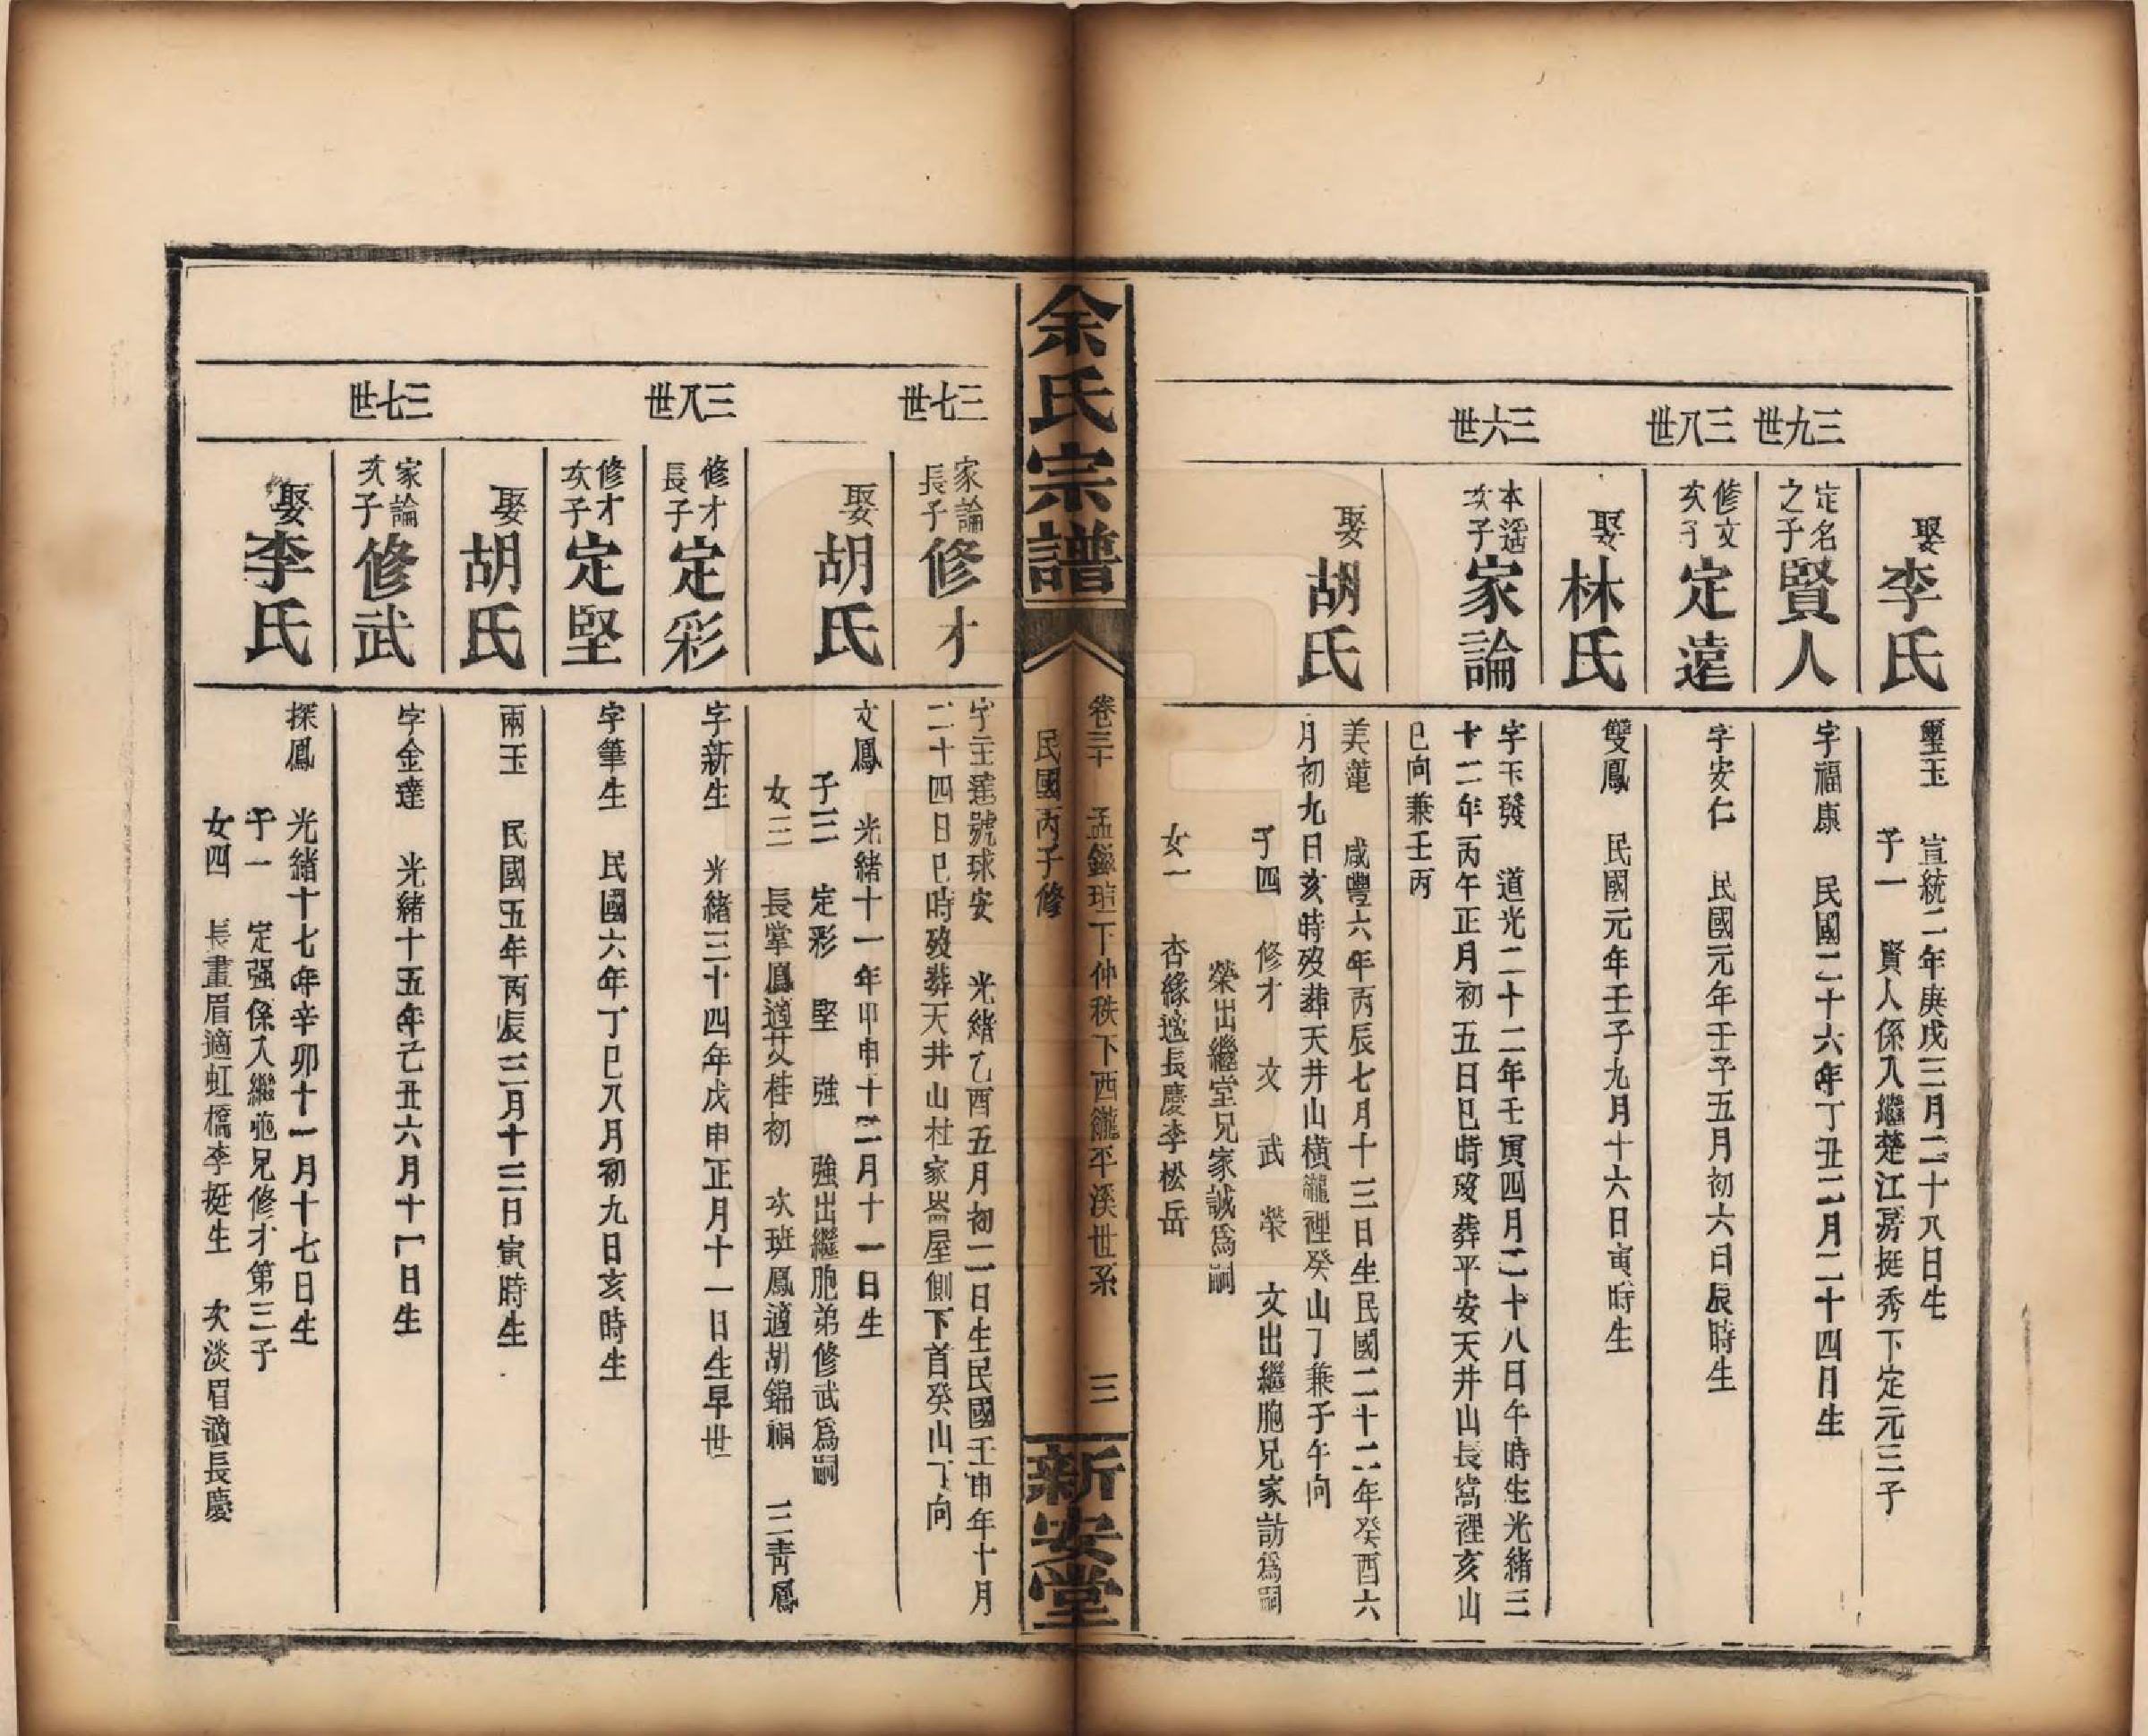 娶李氏
璽玉　宣統二年庚戌三月二十八日生
子一　賢人係入繼楚江房挺秀下定元三子
三九世
定名之子賢人
字福康　民國二十六年丁丑二月二十四日生
三八世
修文次子定遠
字安仁　民國元年壬子五月初六日辰時生
娶林氏
雙鳳　民國元年壬子九月十六日寅時生
三六世
本遥次子家論
字玉發　道光二十二年壬寅四月二十八日午時生光緒三
十二年丙午正月初五日巳時歿葬平安天井山長窩裡亥山
巳向兼壬丙
娶胡氏
美蓮　咸豐六年丙辰七月十三日生民國二十二年癸酉六
月初九日亥時歿葬天井山橫㠠裡癸山丁兼子午向
子四　修才　文　武　榮　文出繼胞兄家訪爲嗣
榮出繼堂兄家誠爲嗣
女一　杏緣適長慶李松岳
余氏宗譜
卷三十　孟鎵瑄下仲秩下西㠠平溪世系　三
民國丙子修
新安堂
三七世
家論長子修才
字玉達號球安　光緒乙酉五月初二日生民國壬申年十月
二十四日巳時歿葬天井山杜家崙屋側下首癸山丁向
娶胡氏
文鳳　光緒十一年甲申十二月十一日生
子三　定彩　堅　強　強出繼胞弟修武爲嗣
女三　長掌鳳適艾桂初　次班鳳適胡錦福　三青鳳
三八世
修才長子定彩
字新生　光緒三十四年戊申正月十一日生早世
修才次子定堅
字筆生　民國六年丁巳八月初九日亥時生
娶胡氏
兩玉　民國五年丙辰三月十三日寅時生
三七世
家論次子修武
字金達　光緒十五年己丑六月十一日生
娶李氏
探鳳　光緒十七年辛卯十一月十七日生
子一　定强係入繼胞兄修才第三子
女四　長畫眉適虹橋李挺生　次淡眉適長慶